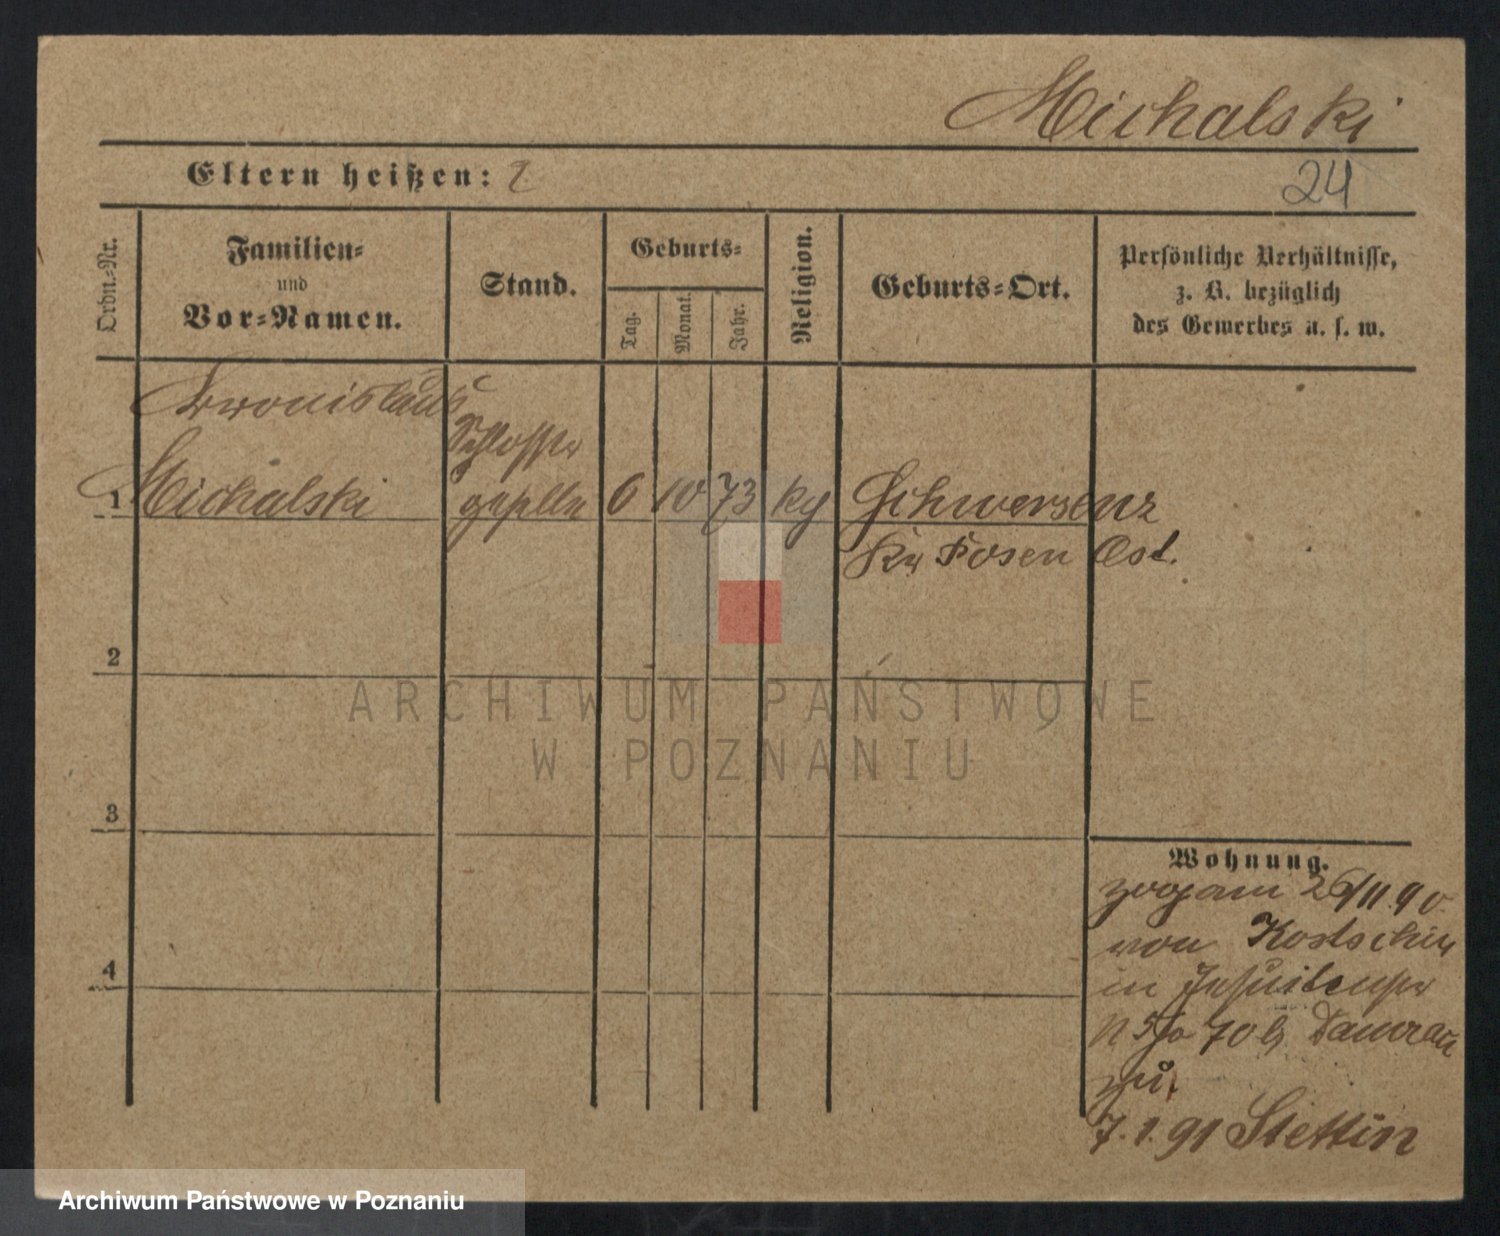 Michalski
Eltern heißen: ?
24
Ordn.-Nr.
Familien-
und
Vor-Namen.
Stand.
Geburts-
Tag.
Monat.
Jahr.
Religion.
Geburts-Ort.
Persönliche Verhältnisse,
z. B. bezüglich
des Gewerbes u. s. w.
Bronislaus
Schlosser
1 Michalski geselle 6 10 73 kg Schwersenz
Kr Posen Ost.
2
ARCHIWUM PAŃSTWOWE
W POZNANIU
3
Wohnung.
zog am 26/11.90
von Kostschin
in
70 b
zu.
7.1.91 Stettin
4
Archiwum Państwowe w Poznaniu